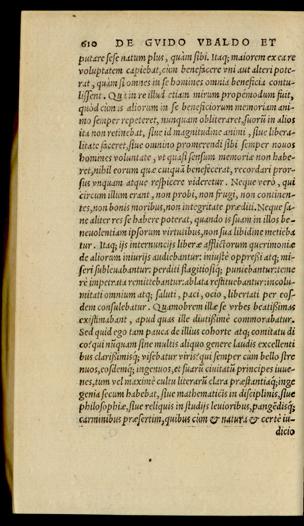 610 DE GVIDO VBALDO ET
putare sese natum plus, quàm sibi. Itaq; maiorem ex ea re
voluptatem capiebat, cùm benefacere vni aut alteri pote-
rat, quàm si omnes in se homines omnia beneficia contu-
lissent. Qua in re illud etiam mirum propemodum fuit,
quòd cùm is aliorum in se beneficiorum memoriam ani-
mo semper repeteret, nunquam oblitераret, suorū in alios
ita non retinebat, siue id magnitudine animi, siue libera-
litate faceret, siue omnino promerendi sibi semper nouos
homines voluntate, vt quasi sensum memoria non habe-
ret, nihil eorum quæ cuiquā benefecerat, recordari pror-
sus vnquam atque respicere videretur. Neque verò, qui
circum illum erant, non probi, non frugi, non continen-
tes, non bonis moribus, non integritate præditi. Neque sa-
ne aliter res se habere poterat, quando is suam in illos be-
neuolentiam ipsorum virtutibus, non sua libidine metieba
tur. Itaq; ijs internuncijs liberæ afflictorum querimoniæ
de aliorum iniurijs audiebantur: iniustè oppressi atq; mi-
seri subleuabantur: perditi flagitiosiq; puniebantur: teme
rè impetrata remittebantur: ablata restituebantur: incolu-
mitati omnium atq; saluti, paci, ocio, libertati per eos-
dem consulebatur. Quamobrem illæ se vrbes beatissimas
existimabant, apud quas ille diutissimè commorabatur.
Sed quid ego tam pauca de illius cohorte atq; comitatu di
co? qui nūquam sine multis aliquo genere laudis excellenti
bus clarissimisq; visebatur viris: qui semper cùm bello stre
nuos, eosdemq; ingenuos, et suarū ciuitatū principes iuue-
nes, tum vel maximè cultu literarū clara præstantiaq; inge
genia secum habebat, siue mathematicis in disciplinis, siue
philosophiæ, siue reliquis in studijs leuioribus, pangēdisq;
carminibus præsertim, quibus cùm & natura & certè iu-
dicio